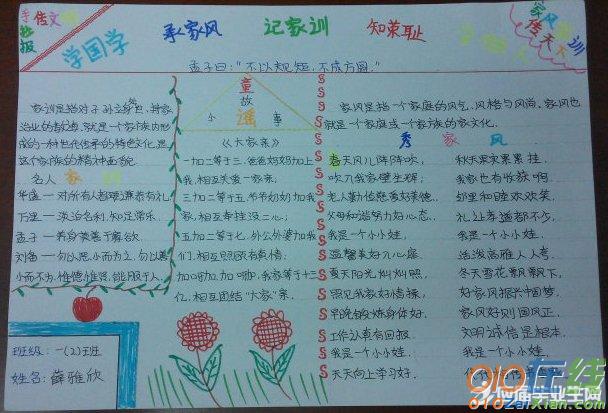 手抄报
传文
学国学
承家风
记家训
知荣耻
家风
训
传天
孟子曰:"不以规矩,不成方圆。"
家训是指对子孙立身处世,持家
治业的教诲,就是一个家族内形
成的一种世代传承的特色文化,是
这个家族的精神面貌。
名人家
华盛一对所有人都要谦恭有礼
万里一淡泊名利,知足常乐
孟子一养身莫善于寡欲
刘备一勿以恶小而为之,勿以善
小而不为,惟德惟贤,能服于人。
班级:一(2)班
姓名:薛雅欣
童
故
小 谣 事
《大家亲》
一加二等于三,爸爸妈妈加上
我,相互关爱一家亲;
三加二等于五,爷爷奶奶加我
家,相互孝挂没二心;
五加二等于七,外公外婆加我
们,相互照顾有真情;
加啊加,加啊加,我家等于十三
亿,相互团结"大家"亲。
家风是指一个家庭的风气,风格与风尚。家风也
就是一个家庭或一个家族的家文化。
秀家风
春天风儿阵阵吹,
吹入我家壁生辉;
老人勤俭慈善好美德,
父母和谐努力好心态。
我是一个小小娃,
温馨美好入心座
夏天阳光灿灿照,
照见我家好情操,
早晚锻炼身体好,
工作认真有回报。
我是一个小小娃,
天天向上学习好。
秋天果实累累挂,
我家也有收获啊,
邻里和睦欢欢笑,
礼让孝道都不少。
我是一个小小娃,
活泼高雅人人夸。
冬天雪花飘飘下,
好家风振兴中国梦,
家风好则国风正,
文明诚信是根本。
我是一个小小娃,
910在线
应届毕业生网
910ZaiXian.com